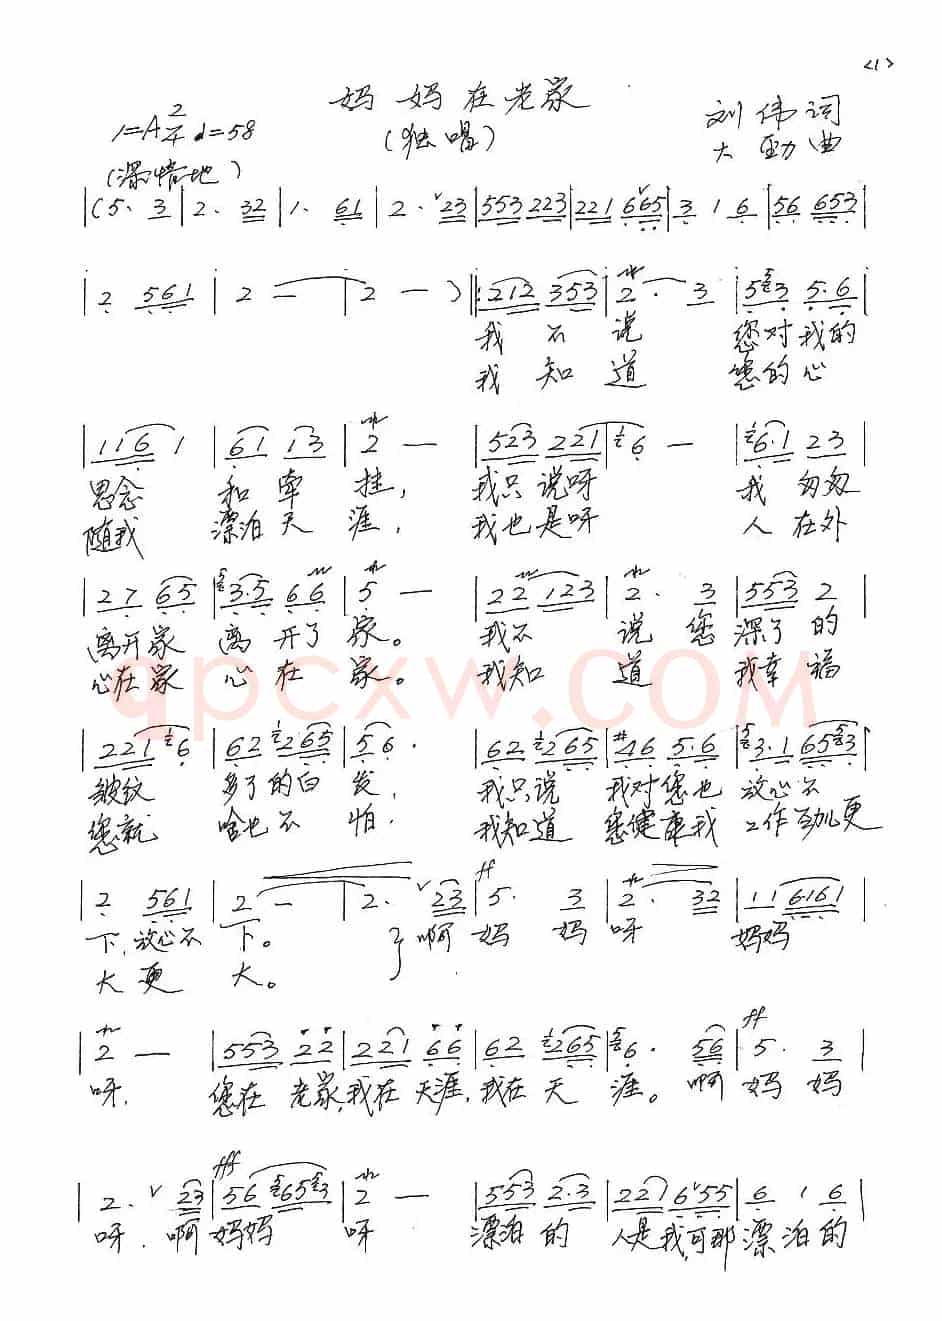 <1>
妈妈在老家
1=A 2/4 ♩=58 (独唱) 刘伟词
(深情地) 大劲曲
|(5. 3|2. 32|1. 61|2. ∨23|553 223|221 6∨65|3 1 6|56 653|
|2 561|2 —|2 —)‖:212 353|2. 3|553 5.6|
我不说 您对我的
我知道 您的心
|116 1|61 13|2 —|523 221|6 —|6.1 23|
思念 和牵挂, 我只说呀 我匆匆
随我 漂泊天涯, 我也是呀 人在外
|27 65|53.5 66|5 —|22 123|2. 3|553 2|
离开家 离开了家。 我不说您 深了的
心在家 心在家。 我知道 我幸福
qpcxw.COM
|221 6|62 265|5 6.|62 265|#46 5.6|53.1 6553|
皱纹 多了的白发, 我只说 我对您也 放心不
您就 啥也不怕, 我知道 您健康我 工作劲更
ff
|2 561|2 —|2. ∨23|5. 3|2. 32|11 6161|
下,放心不下。 啊 妈妈呀 妈妈
大更大。
ff
|2 —|553 22|221 66|62 265|56. 56|5. 3|
呀, 您在老家,我在天涯,我在天涯。啊 妈妈
fff
|2. ∨23|56 56553|2 —|553 2.3|221 6∨55|6 1 6|
呀,啊 妈妈 呀 漂泊的 人是我,可那漂泊的